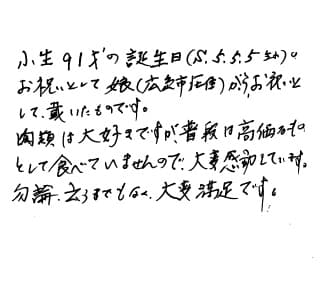 小生91才の誕生日(S.5.5.5生)。
お祝いとして娘(広島市在住)からお祝いと
して、戴いたものです。
肉類は大好きですが、普段は高価なもの
として食べていませんので、大変感動しています。
勿論、云うまでもなく、大変満足です。